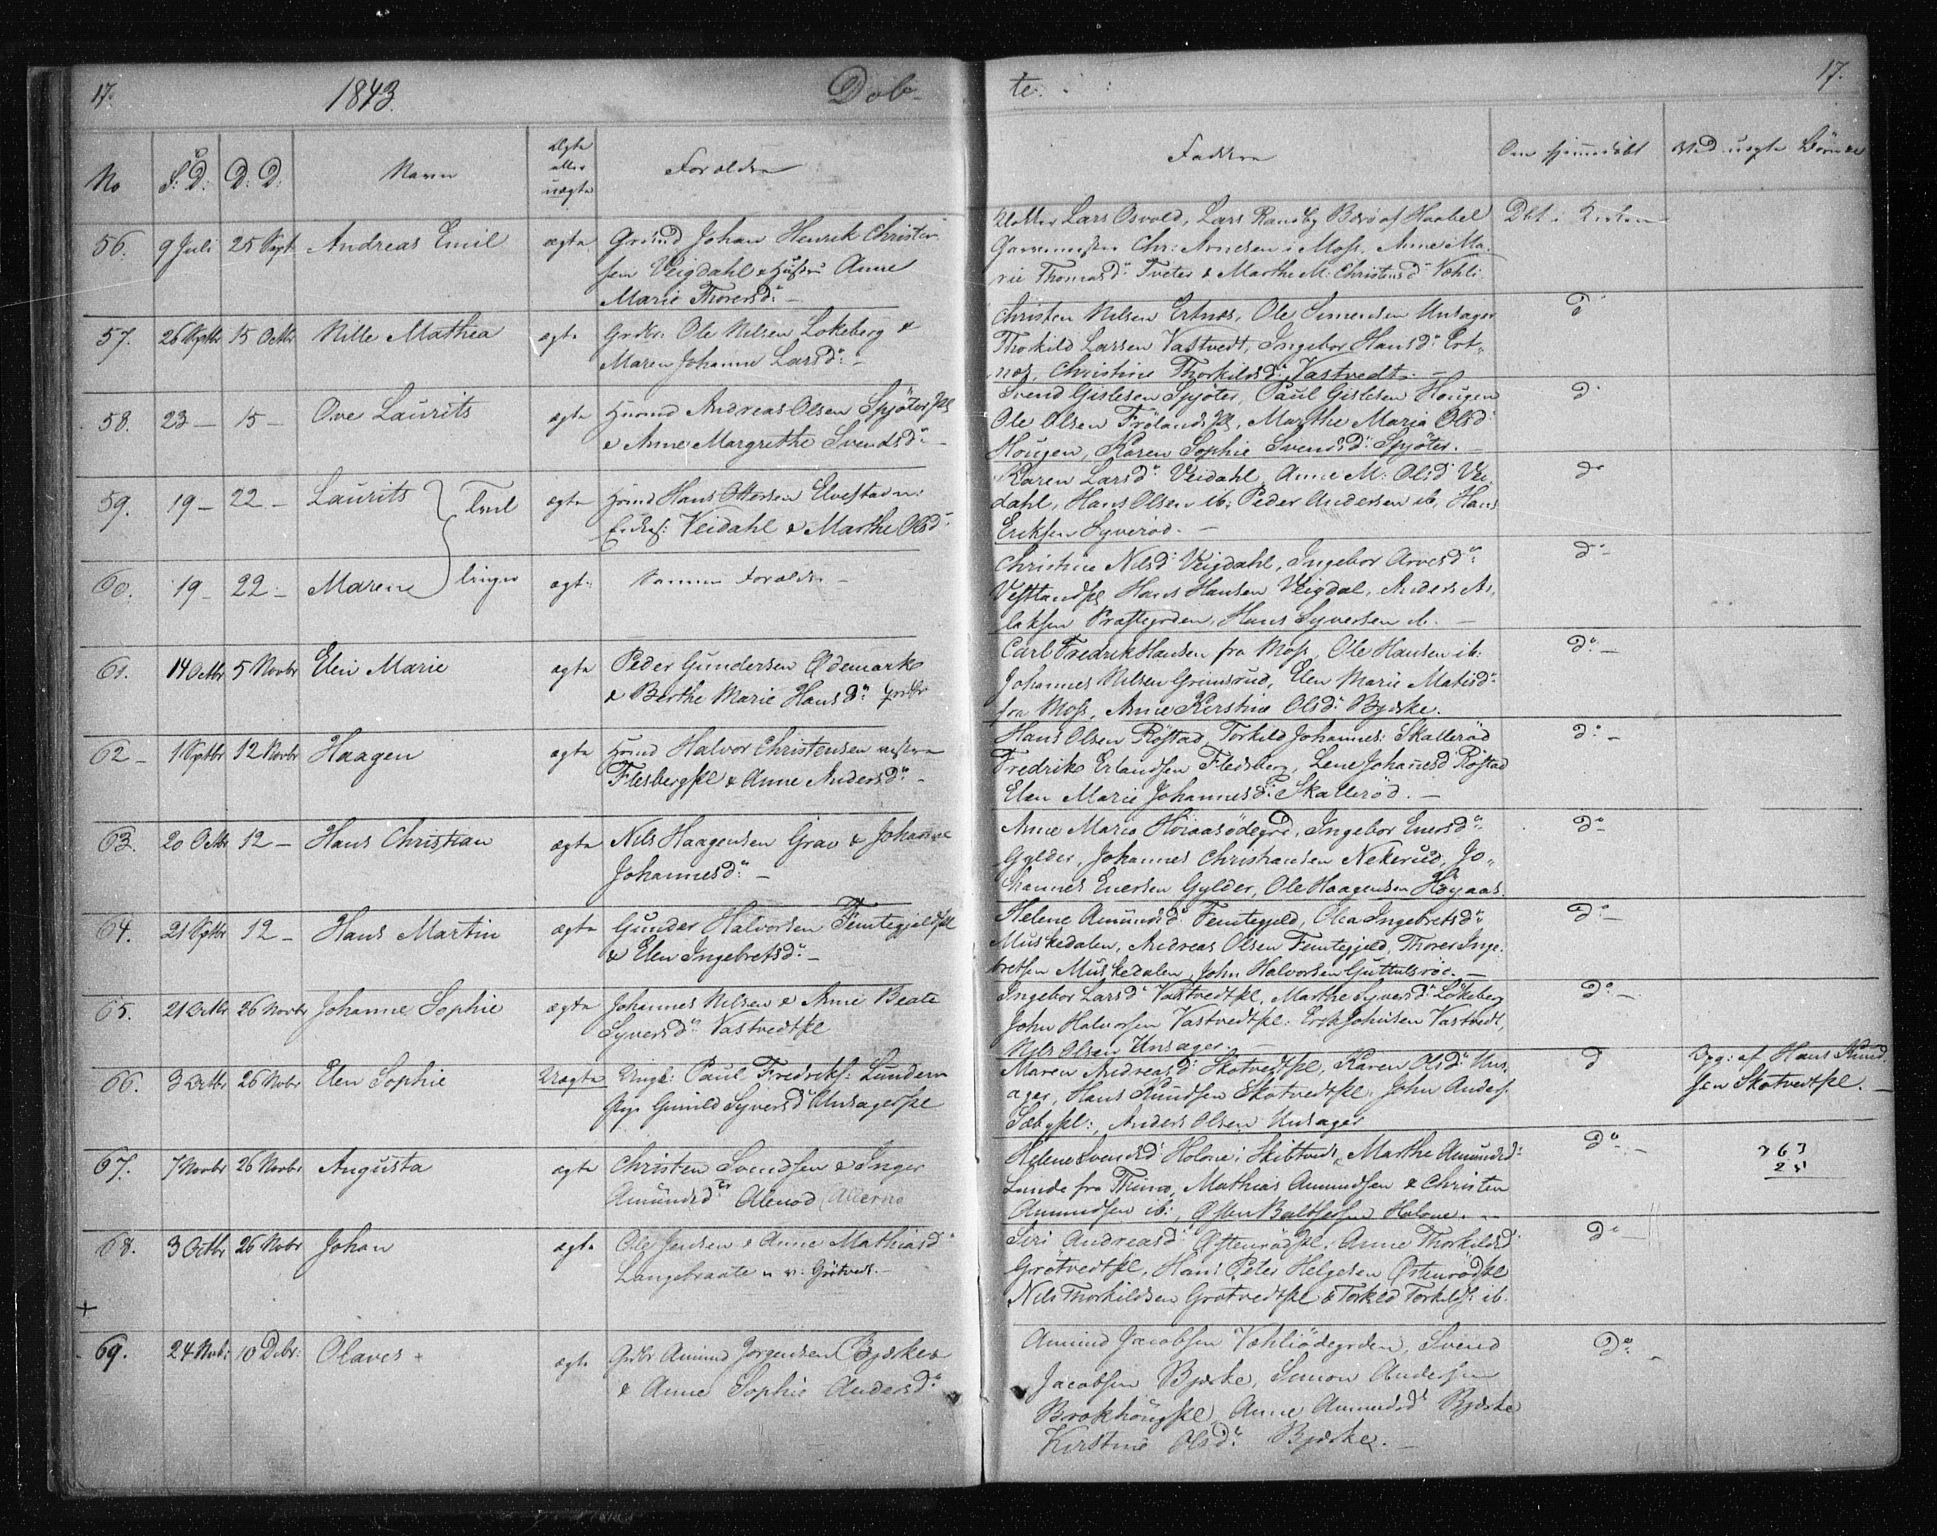 17. 1843. Døb-
te. 17.
No F: D: D: D: Navn Ægte eller uægte Forældre
Faddere Om hjemmedøbt Ved uægte Børn
56. 9 Juli 25 Sept Andreas Emil ægte Grdmd Johan Henrik Christen
sen Veigdahl & Hustru Anne
Marie Thorersd: –
Lars Osvold, Lars Ransby
Chr: Arnesen i Moss, Anne Ma-
rie Thomasd: Tveter & Marthe M. Christensd Væhli
57. 26 Septbr 15 Octbr Nille Mathea ægte Grdbr: Ole Nilsen Lökeberg &
Maren Johanne Larsd: –
Christen Nilsen Ertnæs, Ole Simensen Unsager
Thorkild Larsen Vastvedt, Ingebor Hansd: Ert-
næs, Christine Thorkildsd: Vastvedt. – d
58. 23 – 15 – Ove Laurits ægte Huusmd Andreas Olsen Spjöter Pl
& Anne Margrethe Svendsd: –
Svend Gislesen Spjöter, Paul Gislesen Hougen
Ole Olsen Frölandspl, Marthe Maria Olsd
Hougen, Karen Sophie Svensd: Spjöter. – d
59. 19 – 22 – Laurits Tvil ægte Hsmd Hans Ottersen Elvestad
Veidahl & Marthe Olsd:
Karen Larsd: Veidahl, Anne M: Olsd Vei-
dahl, Hans Olsen ib, Peder Andersen ib, Hans
Eriksen Syveröd. – do
60. 19 – 22 – Maren linger ægt: Samme Forældre –
Christine Nilsd: Veigdahl, Ingebor Arvesd:
Vestlandspl Hans Hansen Veigdal, Anders As-
laksen Præstegrden, Hans Syversen ib. – d: –
61. 14 Octbr 5 Novbr Elen Marie ægte Peder Gundersen Ødemark
& Berthe Marie Hansd: Grdbr
Carl Fredrik Hansen fra Moss, Ole Hansen ib:
Johannes Nilsen Grimsrud, Elen Marie Matisd:
fra Moss, Anne Kirstine Olsd: Bjerke. D: –
62 – 1 Septbr 12 Novbr Haagen ægte Hsmd Halvor Christensen
Flesbergpl & Anne Andersd: –
Hans Olsen Röstad, Torkild Johannes: Skalleröd
Fredrik Erlandsen Flesberg, Lene Johanesd Röstad
Elen Marie Johannesd: Skalleröd. – d: –
63. 20 Octbr 12 – Hans Christian ægte Nils Haagensen Grav & Johanne
Johannesd: –
Anne Maria Höiaasödegrd, Ingebor Enersd:
Gylder, Johannes Christiansen Nekerud, Jo-
hannes Enersen Gylder, Ole Haagensen Höyaas. do –
64. 21 Septbr 12 – Hans Martin ægte Gunder Halvorsen Femtegjeldspl
& Elen Ingebretsd: –
Helene Amundsd Femtegjeld, Olea Ingebretsd:
Muskedalen, Andreas Olsen Femtegjeld, Thorer Inge-
bretsen Muskedalen, John Halvorsen Guttulsröd. – D: –
65. 21 Octbr 26 Novbr Johanne Sophie ægte Johannes Nilsen & Anne Beate
Syversd: Vastvedtpl
Ingebor Larsd Vastvedtpl, Marthe Syversd Lökeberg
John Halvorsen Vastvedtpl: Erik Johnsen Vastvedt,
Nils Olsen Unsager. – Do –
66. 3 Octbr 26 Novbr Elen Sophie Uægte Ungk: Paul Fredriks: Lunderen
Pige Gunild Syversd Unsagerpl
Maren Andreasd: Skotvedtpl, Karen Olsd Uns-
ager, Hans Knudsen Skotvedtpl John Anders
Sæbypl:, Anders Olsen Unsager d
Opg: af Hans Knud
sen Skotvedtpl. –
67. 7 Novbr 26 Novbr Augusta ægte Christen Svendsen & Inger
Amundsd: Aleröd (Alleröd
Helene Svendsd Holene i Skibtvedt, Marthe Amundsd:
Lunde fra Thrænæ, Mathias Amundsen & Christen
Amundsen ib:, Baltsersen Holene. – Do –
363
25
68. 3 Octbr 26 Novbr Johan ægte Ole Jensen & Anne Mathiasd
Langebraate u. v: Grötvedt. –
Siri Andreasd: Østenrödpl, Anne Thorkildsd
Grötvedtpl, Hans Peter Helgesen Østenrödpl
Nils Thorkildsen Grötvedtpl & Torkild Torkilds: ib. Do
+
69. 24 Nov: 10 Decbr: Olaves + ægte Grdbr Amund Jörgensen (Bjerke
& Anne Sophie Andersd:
Amund Jacobsen Væhliödegrden, Svend
Jacobsen Bjerke, Simon Andersen
Brækhöugpl, Anne Amundsd: Bjerke
Kirstine Olsd: Bjerke. – Do –